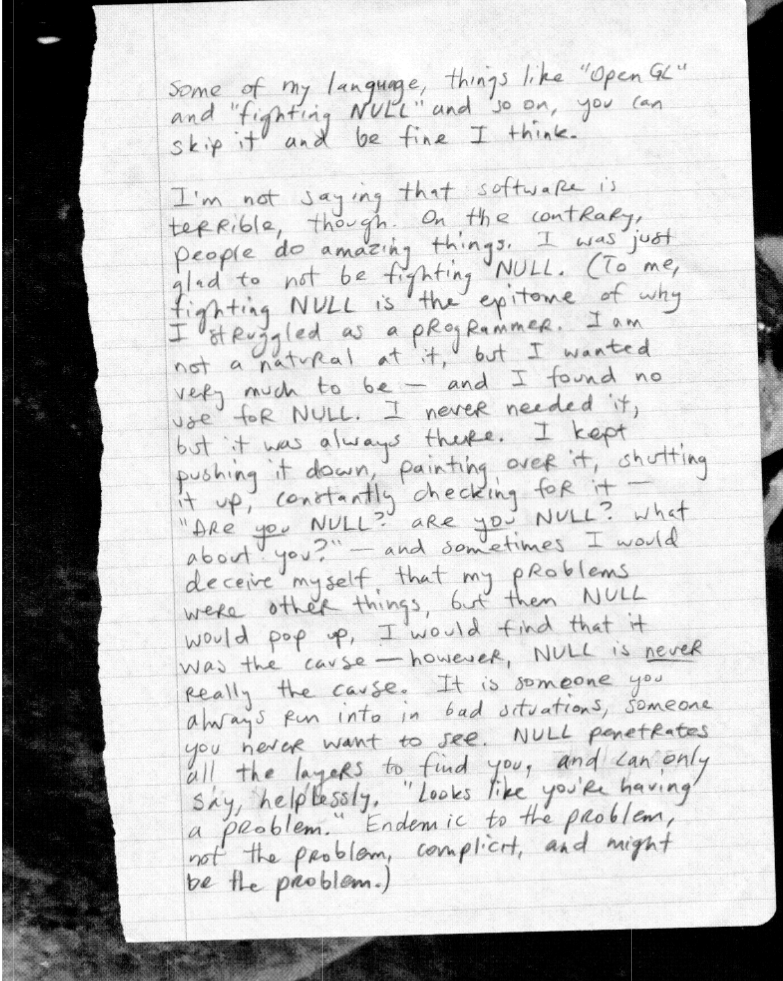 Some of my language, things like "Open GL"
and "fighting NULL" and so on, you can
skip it and be fine I think.
I'm not saying that software is
terrible, though. On the contrary,
people do amazing things. I was just
glad to not be fighting NULL. (To me,
fighting NULL is the epitome of why
I struggled as a programmer. I am
not a natural at it, but I wanted
very much to be — and I found no
use for NULL. I never needed it,
but it was always there. I kept
pushing it down, painting over it, shutting
it up, constantly checking for it —
"Are you NULL? are you NULL? what
about you?" — and sometimes I would
deceive myself that my problems
were other things, but then NULL
would pop up, I would find that it
was the cause — however, NULL is never
really the cause. It is someone you
always run into in bad situations, someone
you never want to see. NULL penetrates
all the layers to find you, and can only
say, helplessly, "Looks like you're having
a problem." Endemic to the problem,
not the problem, complicit, and might
be the problem.)